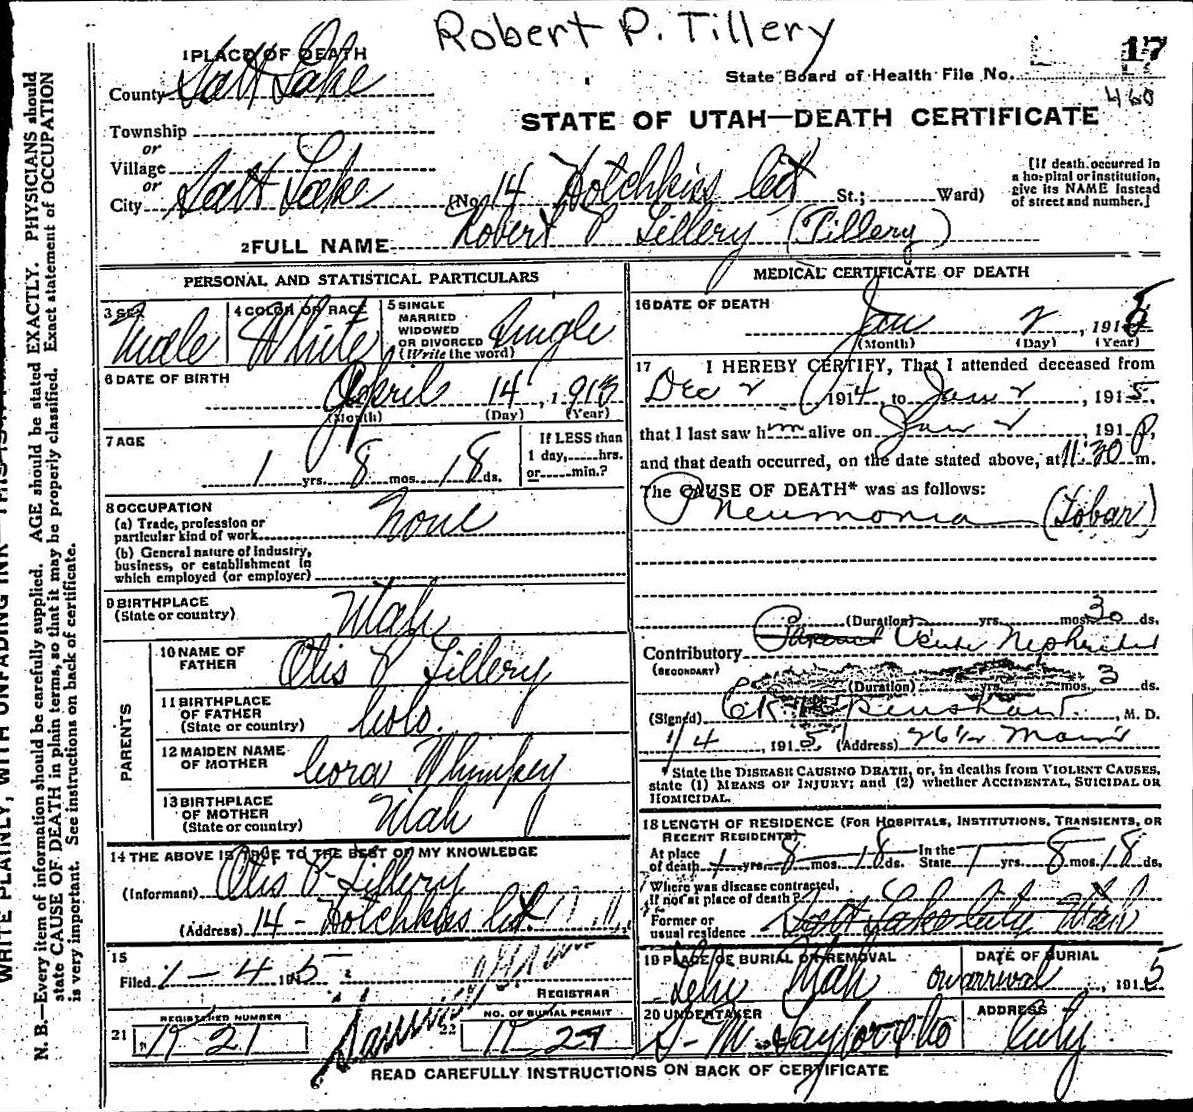 Robert P. Tillery
1 PLACE OF DEATH
County Salt Lake
State Board of Health File No. 17
460
STATE OF UTAH—DEATH CERTIFICATE
Township
or
Village
or
City Salt Lake (No. 14 Hotchkiss Crt St.; Ward)
[If death occurred in
a hospital or institution,
give its NAME instead
of street and number.]
2 FULL NAME Robert P Tillery (Tillery)
PERSONAL AND STATISTICAL PARTICULARS
3 SEX Male
4 COLOR OR RACE White
5 SINGLE
MARRIED
WIDOWED
OR DIVORCED
(Write the word) Single
6 DATE OF BIRTH April 14, 1913
(Month) (Day) (Year)
7 AGE
1 yrs. 8 mos. 18 ds.
If LESS than
1 day, hrs.
or min.?
8 OCCUPATION
(a) Trade, profession or
particular kind of work None
(b) General nature of industry,
business, or establishment in
which employed (or employer)
9 BIRTHPLACE
(State or country) Utah
PARENTS
10 NAME OF
FATHER Otis P Tillery
11 BIRTHPLACE
OF FATHER
(State or country) Colo.
12 MAIDEN NAME
OF MOTHER Cora Whimpey
13 BIRTHPLACE
OF MOTHER
(State or country) Utah
14 THE ABOVE IS TRUE TO THE BEST OF MY KNOWLEDGE
(Informant) Otis P Tillery
(Address) 14 - Hotchkiss Crt
15
Filed 1-4 1915
REGISTRAR
21 REGISTERED NUMBER
22 NO. OF BURIAL PERMIT
MEDICAL CERTIFICATE OF DEATH
16 DATE OF DEATH
Jan 2, 1915
(Month) (Day) (Year)
17 I HEREBY CERTIFY, That I attended deceased from
Dec 2 1914, to Jan 2, 1915,
that I last saw him alive on Jan 2, 191
and that death occurred, on the date stated above, at 11:30 P m.
The CAUSE OF DEATH* was as follows:
Pneumonia (Lobar)
(Duration) yrs. mos. 30 ds.
Contributory Acute Nephritis
(SECONDARY)
(Duration) yrs. mos. 3 ds.
(Signed) , M. D.
1/4, 1915 (Address) 26 1/2 Main
*State the DISEASE CAUSING DEATH, or, in deaths from VIOLENT CAUSES,
state (1) MEANS OF INJURY; and (2) whether ACCIDENTAL, SUICIDAL OR
HOMICIDAL.
18 LENGTH OF RESIDENCE (FOR HOSPITALS, INSTITUTIONS, TRANSIENTS, OR
RECENT RESIDENTS)
At place
of death 1 yrs. 8 mos. 18 ds. In the
State 1 yrs. 8 mos. 18 ds.
Where was disease contracted,
if not at place of death?
Former or
usual residence Salt Lake City Utah
19 PLACE OF BURIAL OR REMOVAL Lehi Utah
DATE OF BURIAL on arrival, 1915
20 UNDERTAKER S. M. Taylor & Co
ADDRESS City
READ CAREFULLY INSTRUCTIONS ON BACK OF CERTIFICATE
N. B.—Every item of information should be carefully supplied. AGE should be stated EXACTLY. PHYSICIANS should
state CAUSE OF DEATH in plain terms, so that it may be properly classified. Exact statement of OCCUPATION
is very important. See instructions on back of certificate.
WRITE PLAINLY, WITH UNFADING INK